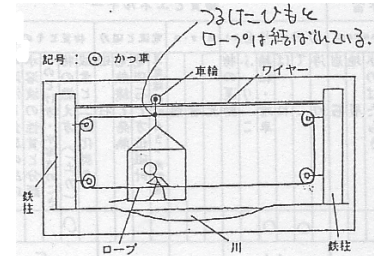 つるしたひもと
ロープは結ばれている.
記号：◎ かっ車
車輪
ワイヤー
鉄柱
ロープ
川
鉄柱